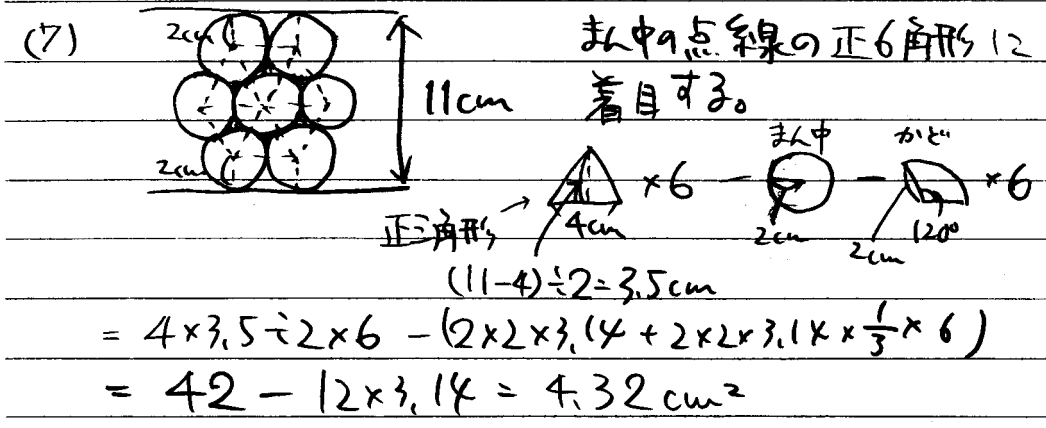 (7)
2cm
2cm
11cm
まん中の点線の正6角形に
着目する。
まん中 かど
×6 - - ×6
正三角形 → 4cm 2cm 2cm 120°
(11-4)÷2=3.5cm
= 4×3.5÷2×6 -(2×2×3.14 + 2×2×3.14×1/3×6)
= 42 - 12×3.14 = 4.32cm²